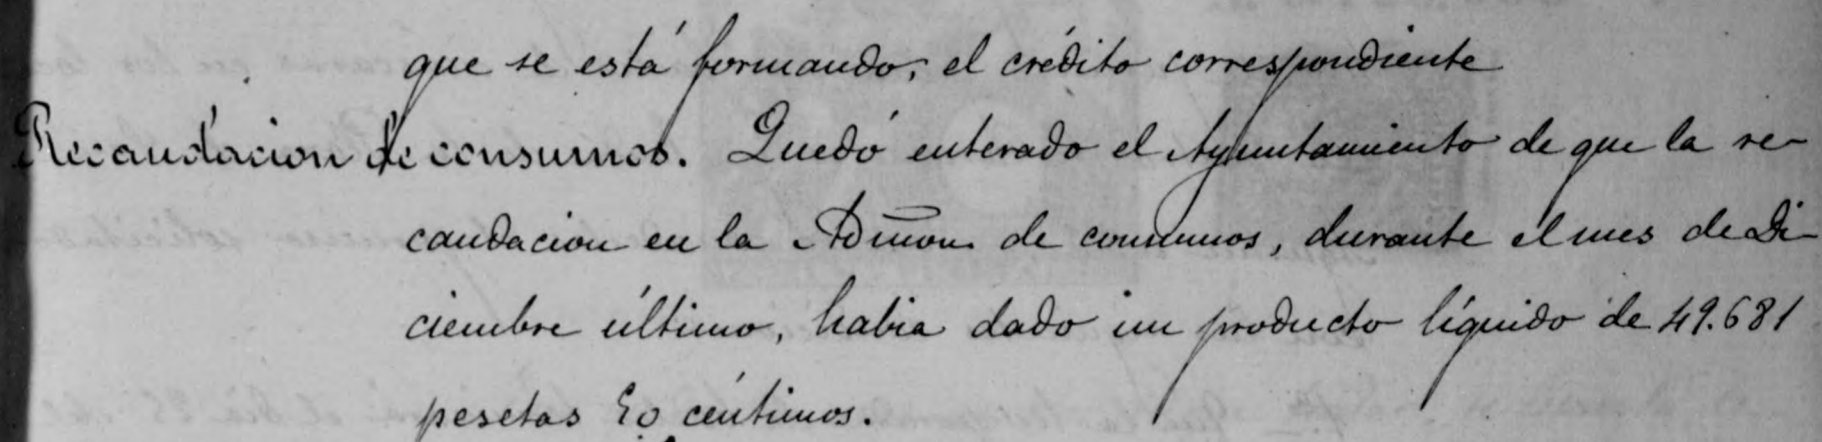 que se está formando, el crédito correspondiente
Recaudacion de consumos. Quedó enterado el Ayuntamiento de que la re-
caudacion en la Admon de consumos, durante el mes de Di-
ciembre último, habia dado un producto líquido de 49.681
pesetas 50 céntimos.